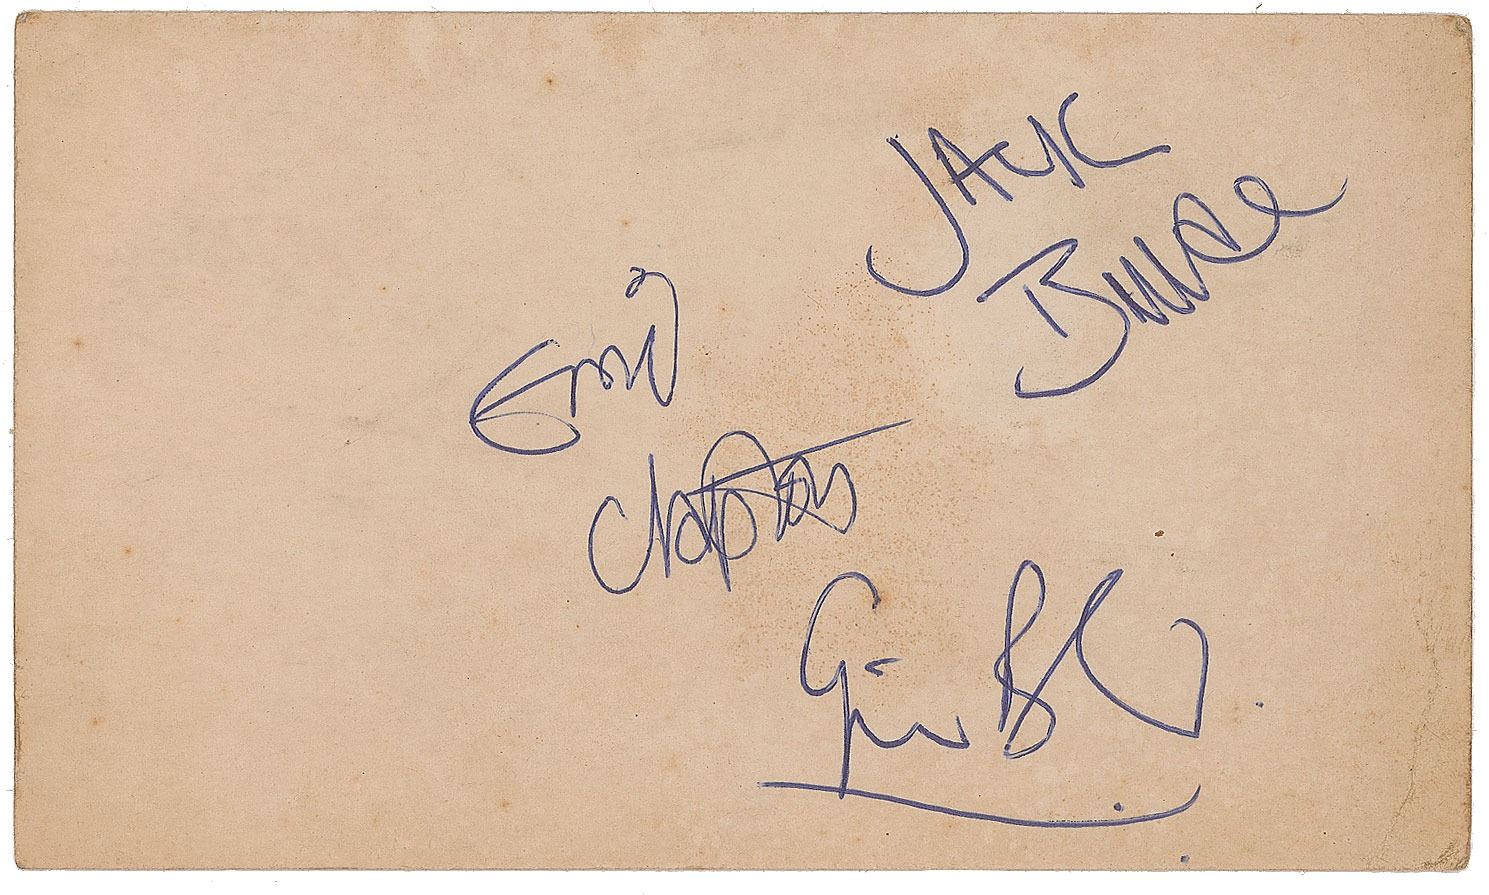 JACK
BRUCE
Eric
Clapton
Ginger B